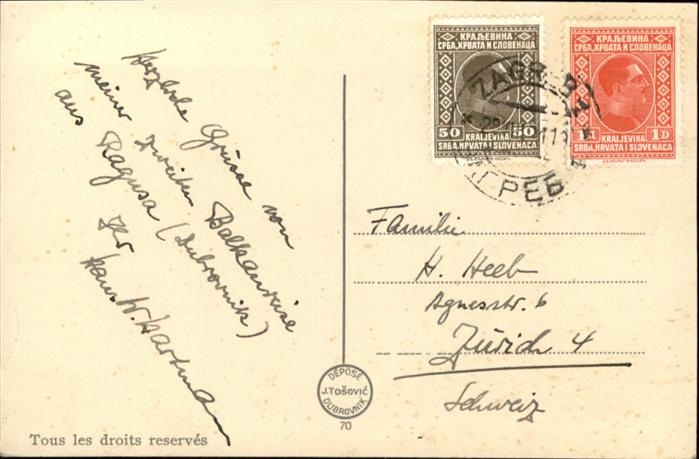 Herzliche Grüsse von
meiner zweiten Balkanreise
aus Ragusa (Dubrovnik)
Ihr
Hans W. Hartmann
Tous les droits reservés
DÉPOSÉ
J. TOŠOVIĆ
DUBROVNIK
70
КРАЉЕВИНА
СРБА, ХРВАТА И СЛОВЕНАЦА
50 50
KRALJEVINA
SRBA, HRVATA I SLOVENACA
КРАЉЕВИНА
СРБА, ХРВАТА И СЛОВЕНАЦА
1Д 1D
KRALJEVINA
SRBA, HRVATA I SLOVENACA
ZAGREB
ЗАГРЕБ
Familie
H. Heeb
Agnesstr. 6
Zürich 4
Schweiz